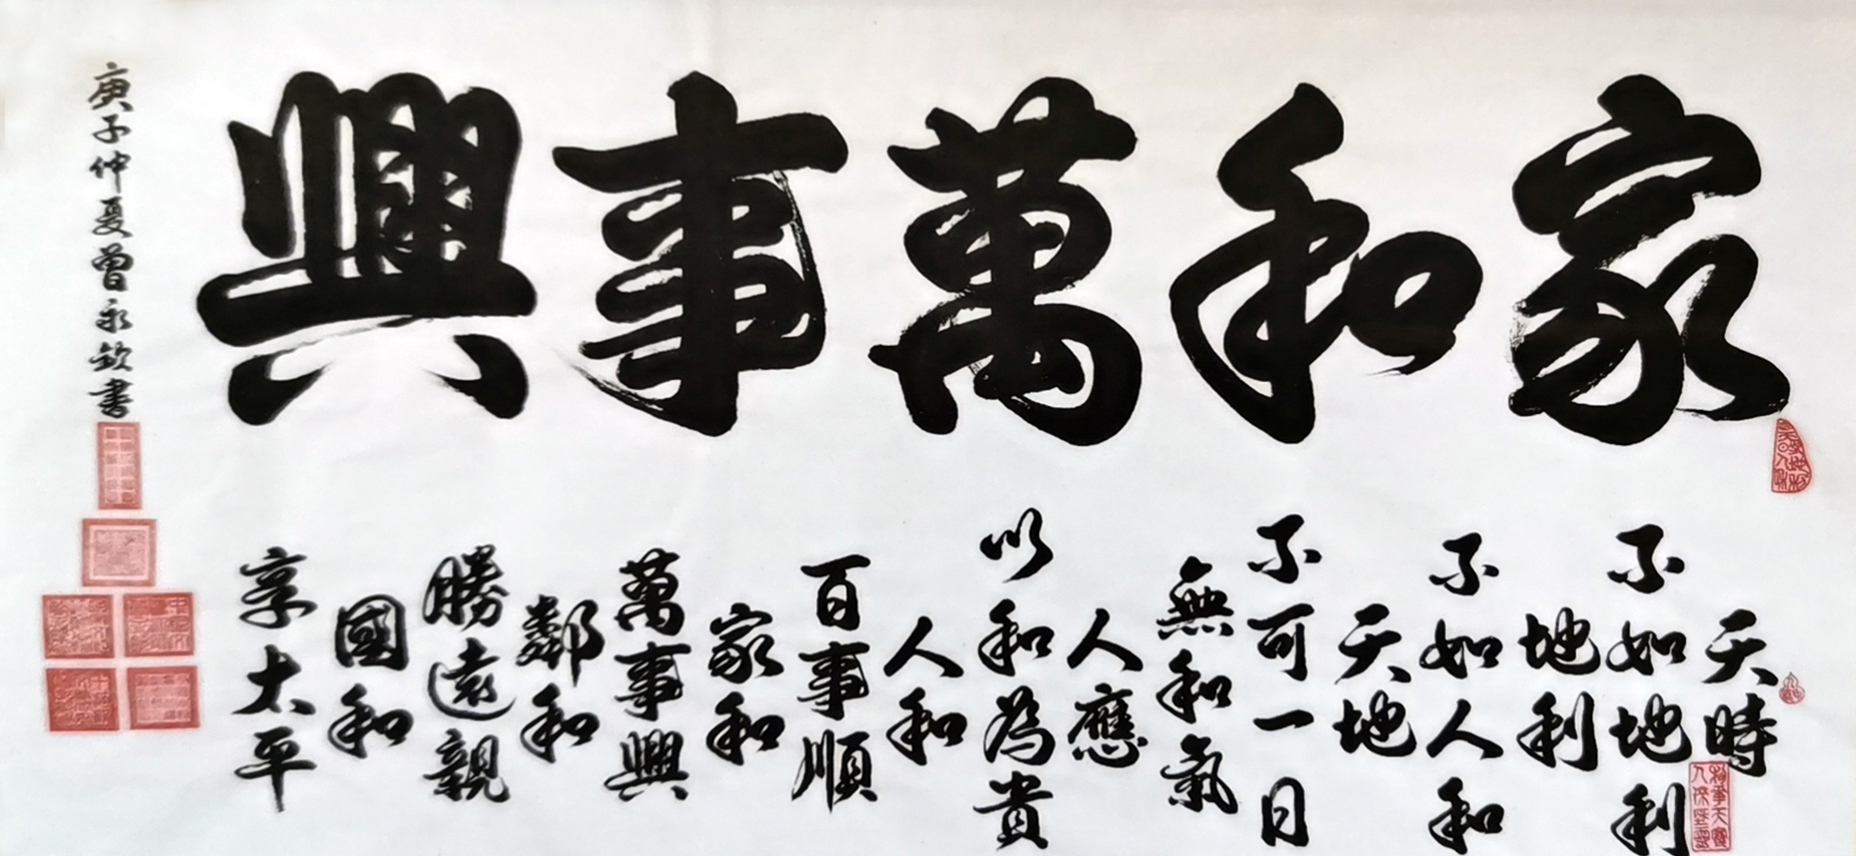 家和萬事興
天時
不如地利
地利
不如人和
天地
不可一日
無和氣
人應
以和為貴
人和
百事順
家和
萬事興
鄰和
勝遠親
國和
享太平
庚子仲夏曾永欽書